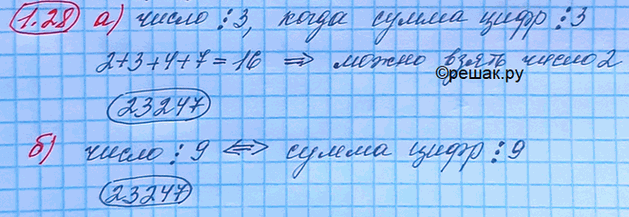 1.28 а) число ⋮ 3, когда сумма цифр ⋮ 3
2+3+4+7=16 ⇒ можно взять число 2
©решак.ру
23247
б) число ⋮ 9 ⇔ сумма цифр ⋮ 9
23247